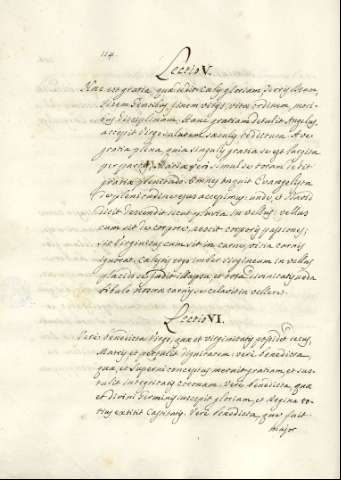 114
Lectio V.
Haec est gratia, quae dedit Caelis gloriam, terris Deum,
fidem gentibus, finem vitijs, vitae ordinem, mori-
bus disciplinam. Hanc gratiam detulit Angelus,
accepit Virgo salutem saeculis redditura. Ave
gratia plena, quia singulis gratia se est largita
per partes, Mariae vero simul se totam dedit
gratiae plenitudo. Omnes inquit Evangelista
de plenitudine ejus accepimus: unde, et David
dicit descendit sicut pluvia in vellus: vellus
cum sit in corpore, nescit corporis passiones;
sic Virginitas cum sit in carne, vitia carnis
ignorat. Caelestis imber Virgineum in vellus
placido se fudit illapsu, et tota divinitatis unda
bibulo nostrae carnis se celavit in vellere.
Lectio VI.
Vere benedicta Virgo, quae et virginitatis possidet decus,
Matris et pertulit dignitatem: vere benedicta,
quae, et Superni conceptus meruit gratiam, et sus-
tulit integritatis coronam. Vere benedicta, quae
et divini Germinis suscepit gloriam, et Regina to-
tius extitit Castitatis. Vere benedicta, quae fuit
major